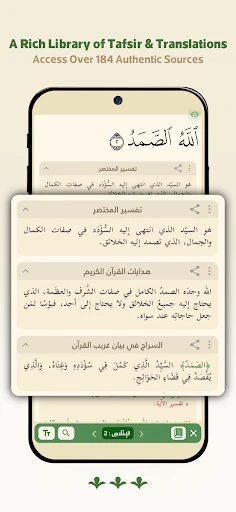 A Rich Library of Tafsir & Translations
Access Over 184 Authentic Sources
ٱللَّهُ ٱلصَّمَدُ ٢
تفسير المختصر
هو السيّد الذي انتهى إليه السُّؤْدَد في صفات الكمال
تفسير المختصر
هو السيّد الذي انتهى إليه السُّؤْدَد في صفات الكمال
والجمال، الذي تصمد إليه الخلائق.
هدايات القرآن الكريم
الله وحدَه الصمدُ الكامل في صفات الشَّرف والعظَمة، الذي
يحتاج إليه جميعُ الخلائق ولا يحتاج إلى أحد، فبُؤسًا لمَن
جعل حاجاتِه عند سواه.
السراج في بيان غريب القرآن
﴿الصَّمَدُ﴾ السَّيِّدُ الَّذِي كَمُلَ فِي سُؤْدَدِهِ وَغِنَاهُ، وَالَّذِي
يُقْصَدُ فِي قَضَاءِ الحَوَائِجِ.
تفسير الآية:
الإخلاص : 2
TT